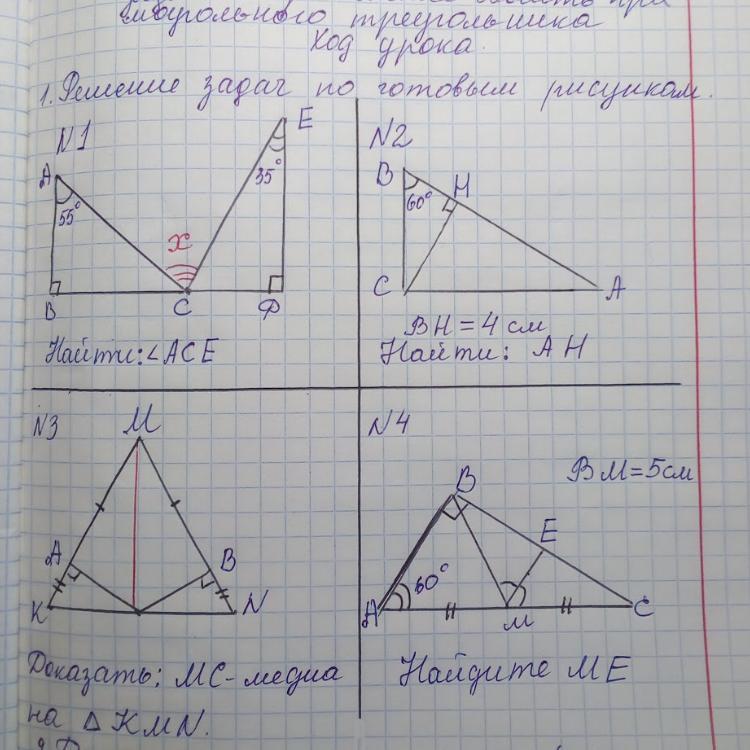 треугольника
Ход урока.
1. Решение задач по готовым рисункам.
N1
E
A
35°
55°
x
B
C
Ф
Найти: ∠ACE
N2
B
H
60°
C
A
BH = 4 см
Найти: AH
N3
M
A
B
K
N
Доказать: MC - медиа
на △ KMN.
N4
BM = 5 см
B
E
60°
A
M
C
Найдите ME